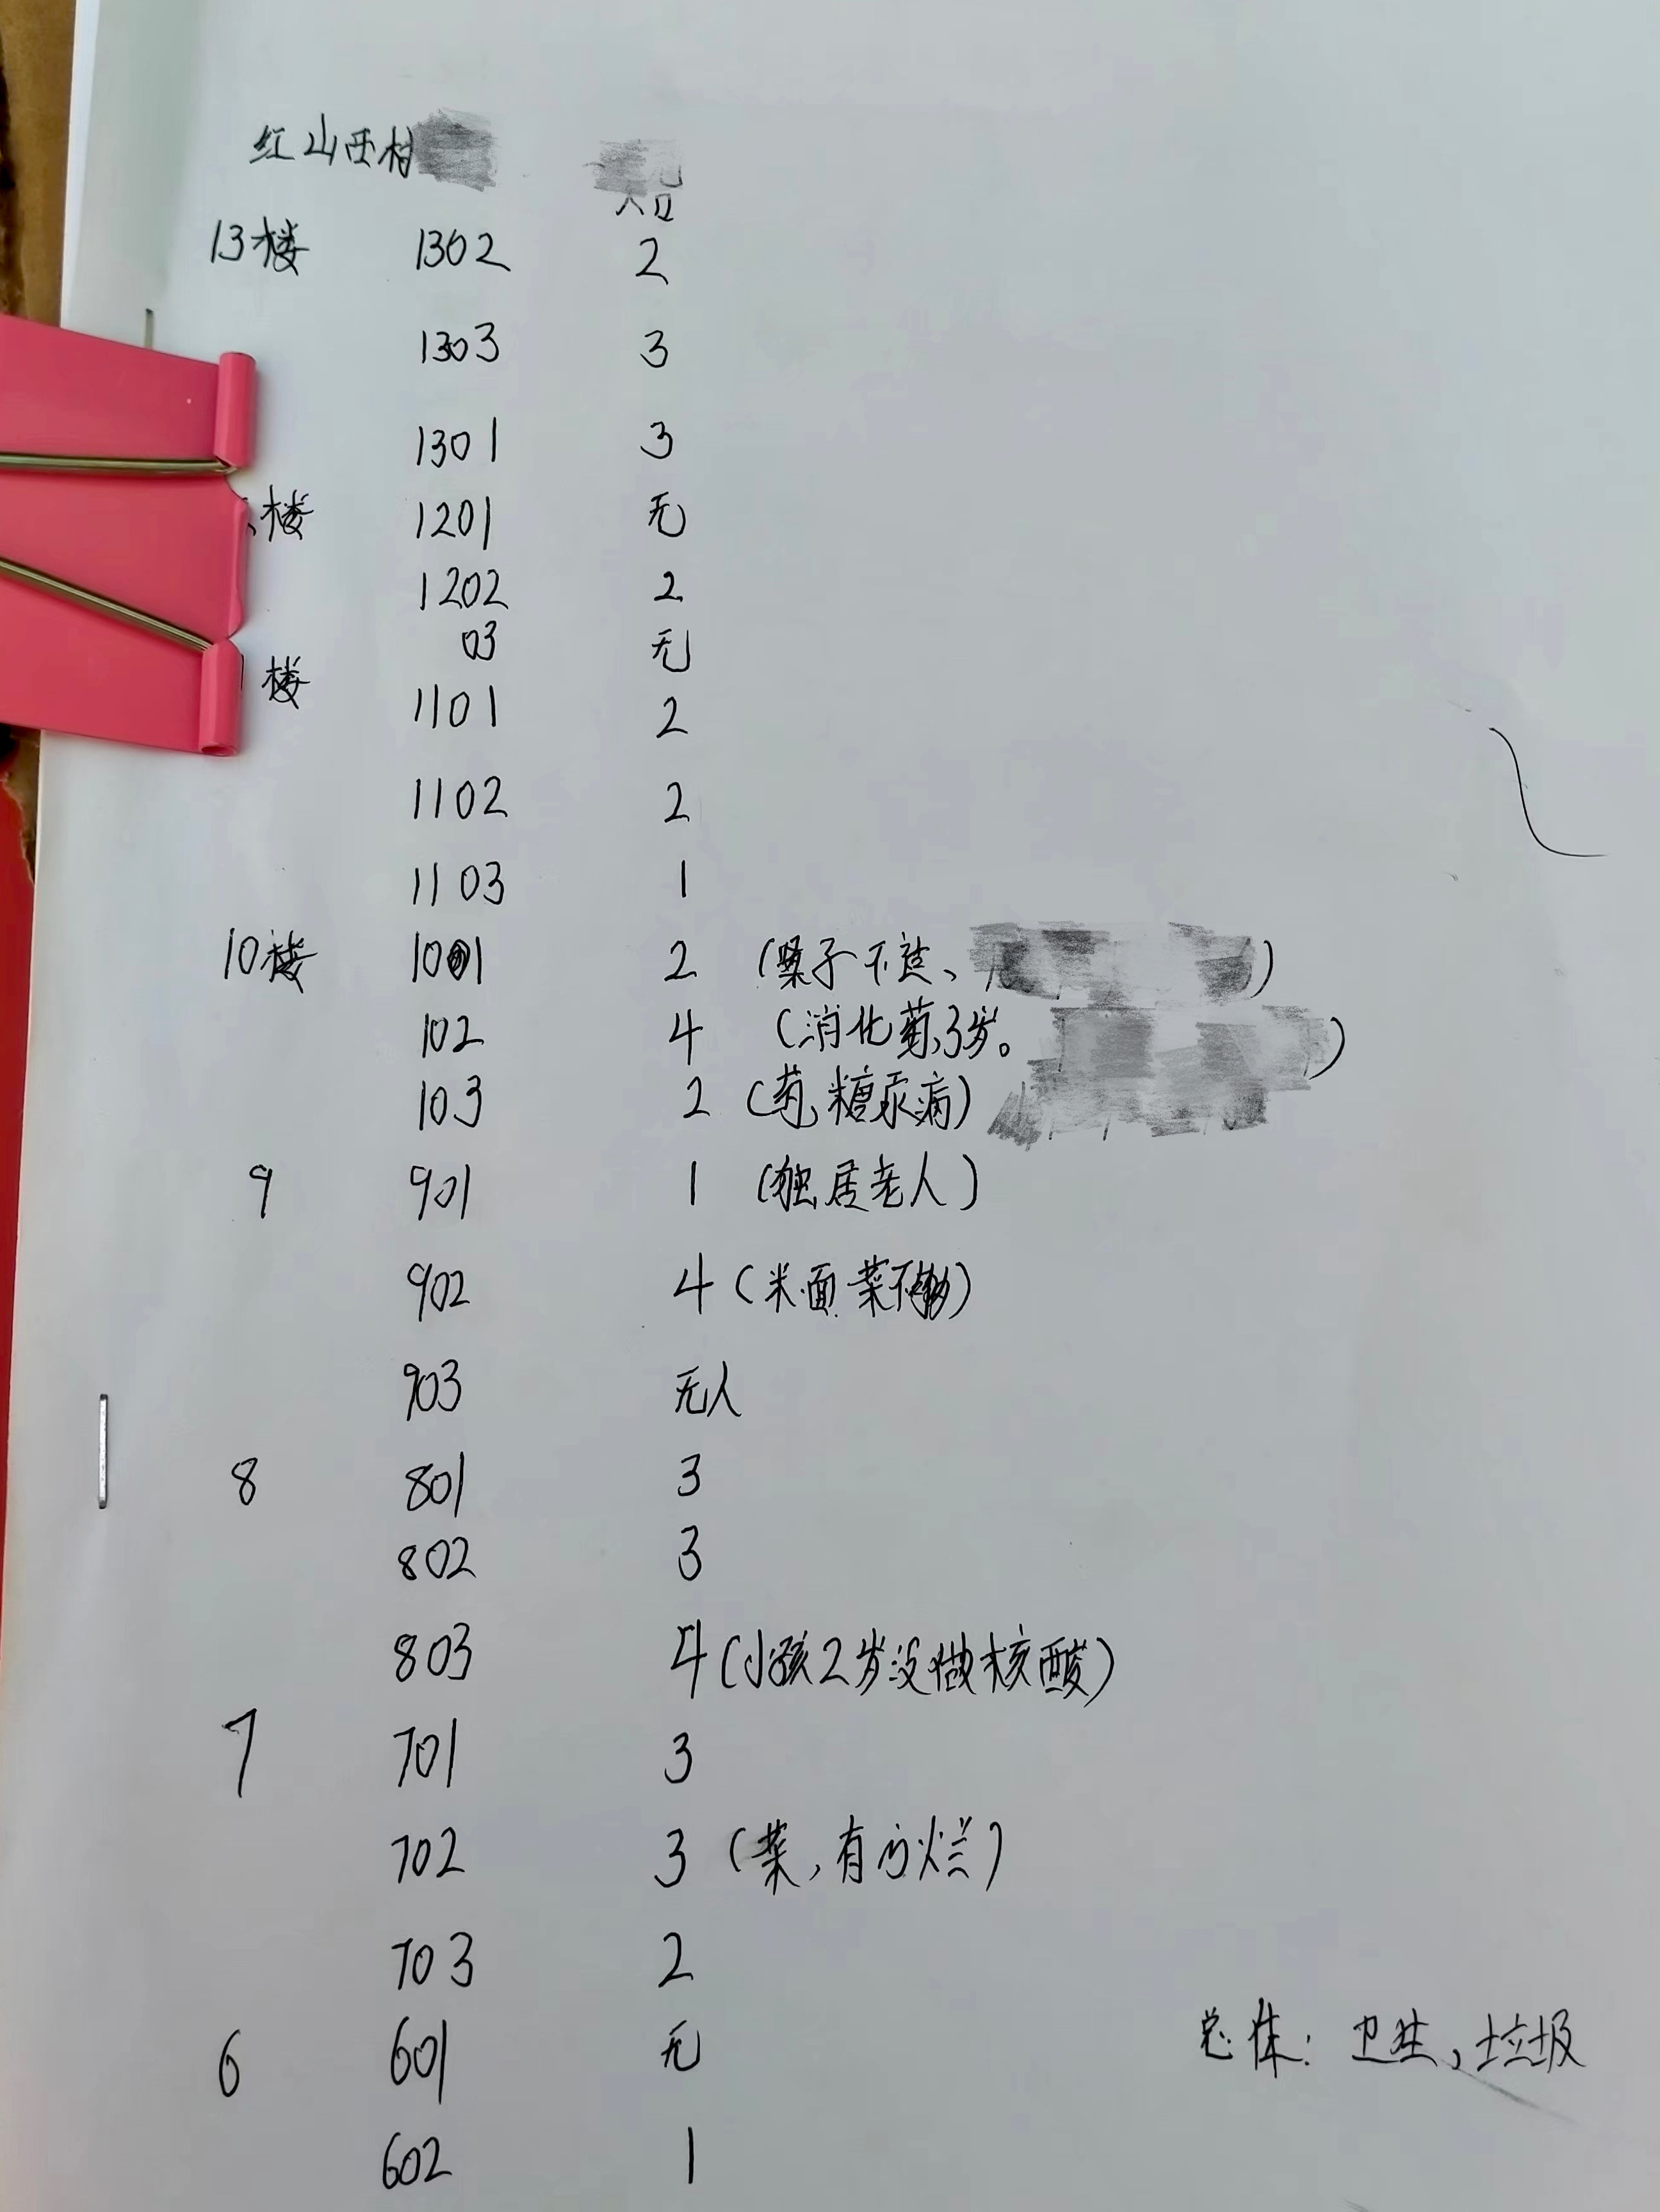 红山西村
人口
13楼 1302 2
1303 3
1301 3
楼 1201 无
1202 2
03 无
楼
1101 2
1102 2
1103 1
10楼 1001 2 (嗓子不适、 )
102 4 (消化药,3岁。 )
103 2 (药,糖尿病)
9 901 1 (独居老人)
902 4 (米面菜不够)
903 无人
8 801 3
802 3
803 4 (小孩2岁没做核酸)
7 701 3
702 3 (菜,有 烂)
703 2
6 601 无
总体: 卫生,垃圾
602 1